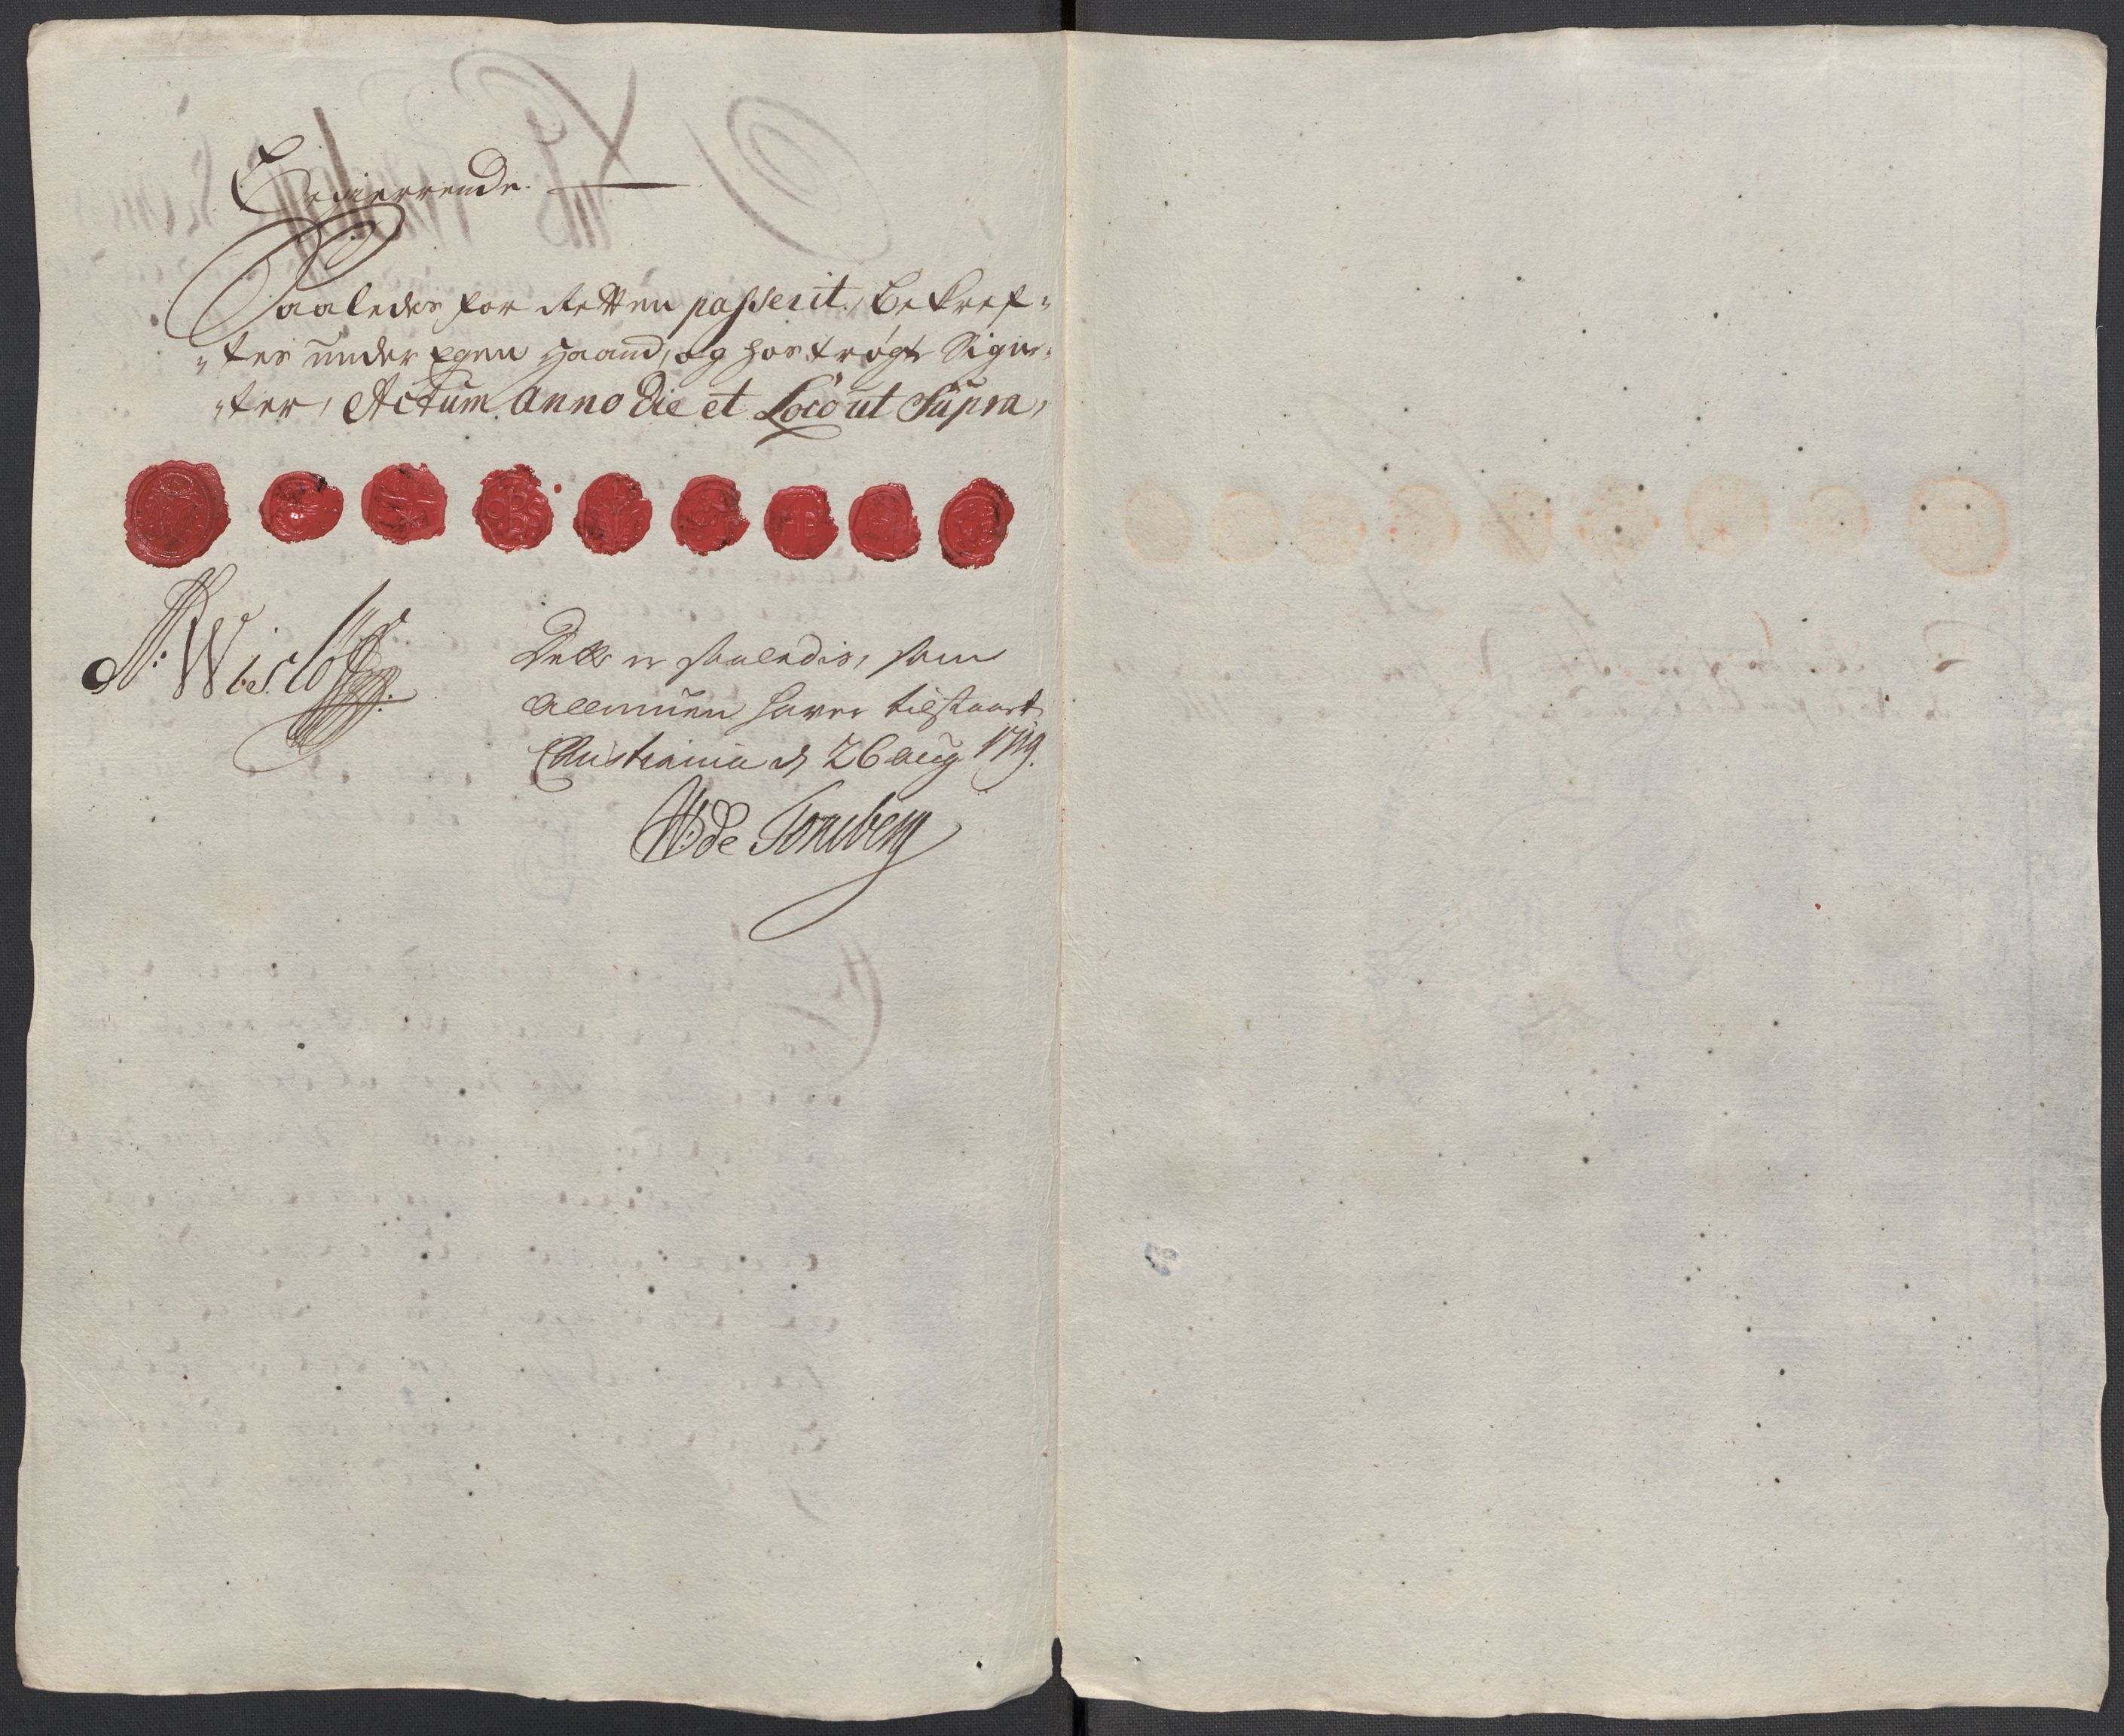 Regierende.
Saaledes for Retten passerit, bekref=
"tes under Egen Haand, og hoströgte Signe=
"ter, Actum Anno Die et Loco ut Supra,
N: Wisløff
Dette er saaledis, som
Allmuen haver tilstaaet
Christiania d 26 aug 1719.
W: de Tonsberg